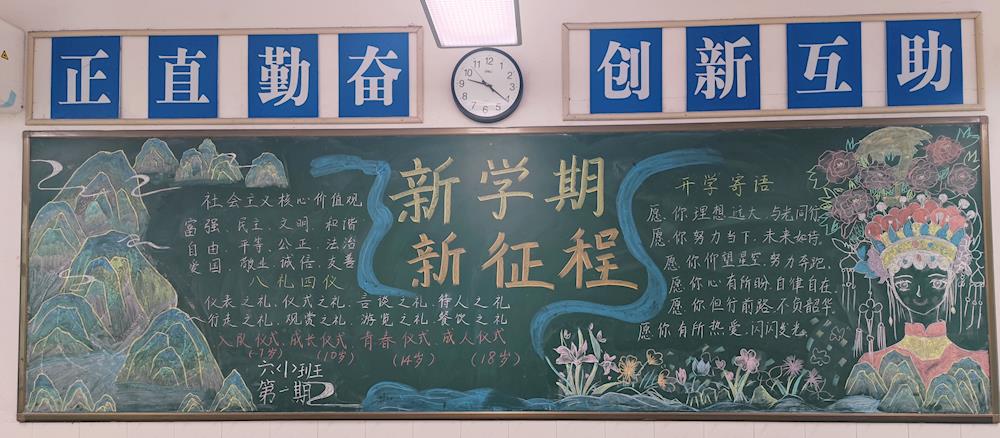 正直勤奋
创新互助
新学期
新征程
社会主义核心价值观
富强、民主、文明、和谐
自由、平等、公正、法治
爱国、敬业、诚信、友善
八礼四仪
仪表之礼、仪式之礼、言谈之礼、待人之礼
行走之礼、观赏之礼、游览之礼、餐饮之礼
入队仪式、成长仪式、青春仪式、成人仪式
(7岁) (10岁) (14岁) (18岁)
六(小)班
第一期
开学寄语
愿你理想远大、与光同行
愿你努力当下，未来如待。
愿你仰望星空、努力奔跑，
愿你心有所盼、自律自在、
愿你但行前路、不负韶华、
愿你有所热爱、闪闪发光
12 1 2 3 4 5 6 7 8 9 10 11